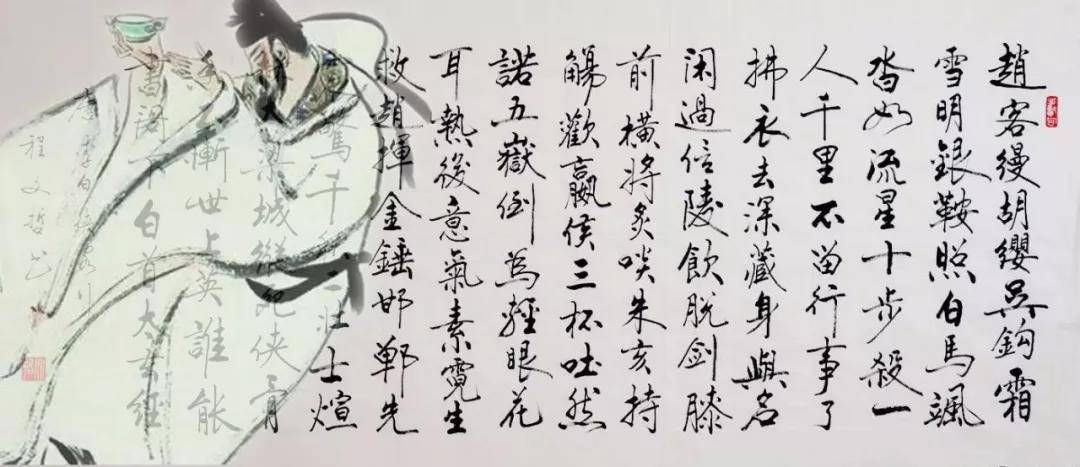 趙客縵胡纓吳鈎霜
雪明銀鞍照白馬颯
沓如流星十步殺一
人千里不留行事了
拂衣去深藏身與名
闲過信陵飲脫劍膝
前橫將炙啖朱亥持
觴歡嬴侯三杯吐然
諾五嶽倒為輕眼花
耳熱後意氣素霓生
救趙揮金錘邯鄲先
驚千二壯士煊
大梁城縱死俠骨
不慚世上英誰能
書閣下白首太玄經
唐李白俠客行
程文哲书